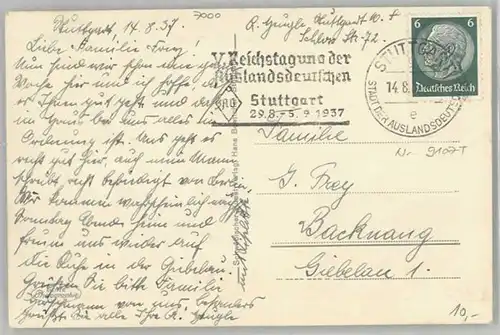 Stuttgart, 14. 8. 37
7000
Liebe Familie Frey!
Nun sind wir schon eine
Woche hier und ich hoffe, daß
es Ihnen gut geht und daß
im Geschäft alles in
Ordnung ist. Uns geht es
recht gut hier, auch mein Mann
schreibt recht befriedigt von Berlin.
Wir kommen wahrscheinlich
Sonntag Abend heim und
freuen uns wieder auf
die Ruhe in der Giebelau.
Grüßen Sie bitte Familie
von uns, besonders
grüßt Sie alle Ihre R. Zeugle
R. Zeugle Stuttgart W.
Schloss Str. 72
V. Reichstagung der
Auslandsdeutschen
Stuttgart
29.8.-5.9 1937
6 6
Deutsches Reich
STUTTGART
14.8.
e
STADT DER AUSLANDSDEUTSCHEN
Familie
Nr. 9107T
J. Frey
Backnang
Giebelau 1.
10,-